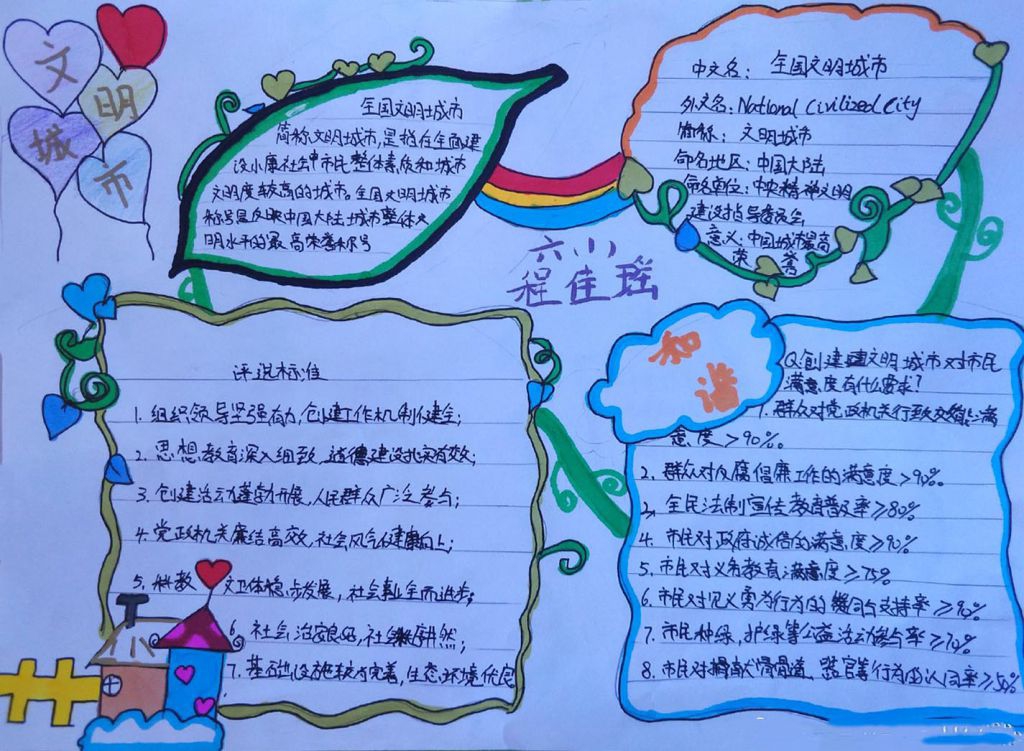 文
明
城
市
全国文明城市
简称文明城市,是指在全面建
设小康社会中市民整体素质和城市
文明度较高的城市。全国文明城市
称号是反映中国大陆城市整体文
明水平的最高荣誉称号
中文名: 全国文明城市
外文名: National Civilized City
简称: 文明城市
命名地区: 中国大陆
命名单位: 中央精神文明
建设指导委员会
意义: 中国城市最高
荣誉
六小
程佳瑶
评选标准
1. 组织领导坚强有力,创建工作机制健全;
2. 思想教育深入细致,道德建设扎实有效;
3. 创建活动蓬勃开展,人民群众广泛参与;
4. 党政机关廉洁高效,社会风气健康向上;
5. 科教文卫体稳步发展,社会事业全面进步;
6. 社会治安良好,社会秩序井然;
7. 基础设施较为完善,生态环境优良
和谐
Q:创建文明城市对市民
满意度有什么要求?
1. 群众对党政机关行政效能满
意度>90%。
2. 群众对反腐倡廉工作的满意度>90%。
3. 全民法制宣传教育普及率≥80%
4. 市民对政府诚信的满意度≥90%
5. 市民对义务教育满意度≥75%
6. 市民对见义勇为行为的赞同与支持率≥90%
7. 市民种绿,护绿等公益活动参与率≥70%
8. 市民对捐献骨髓,器官善行为的认同率≥50%